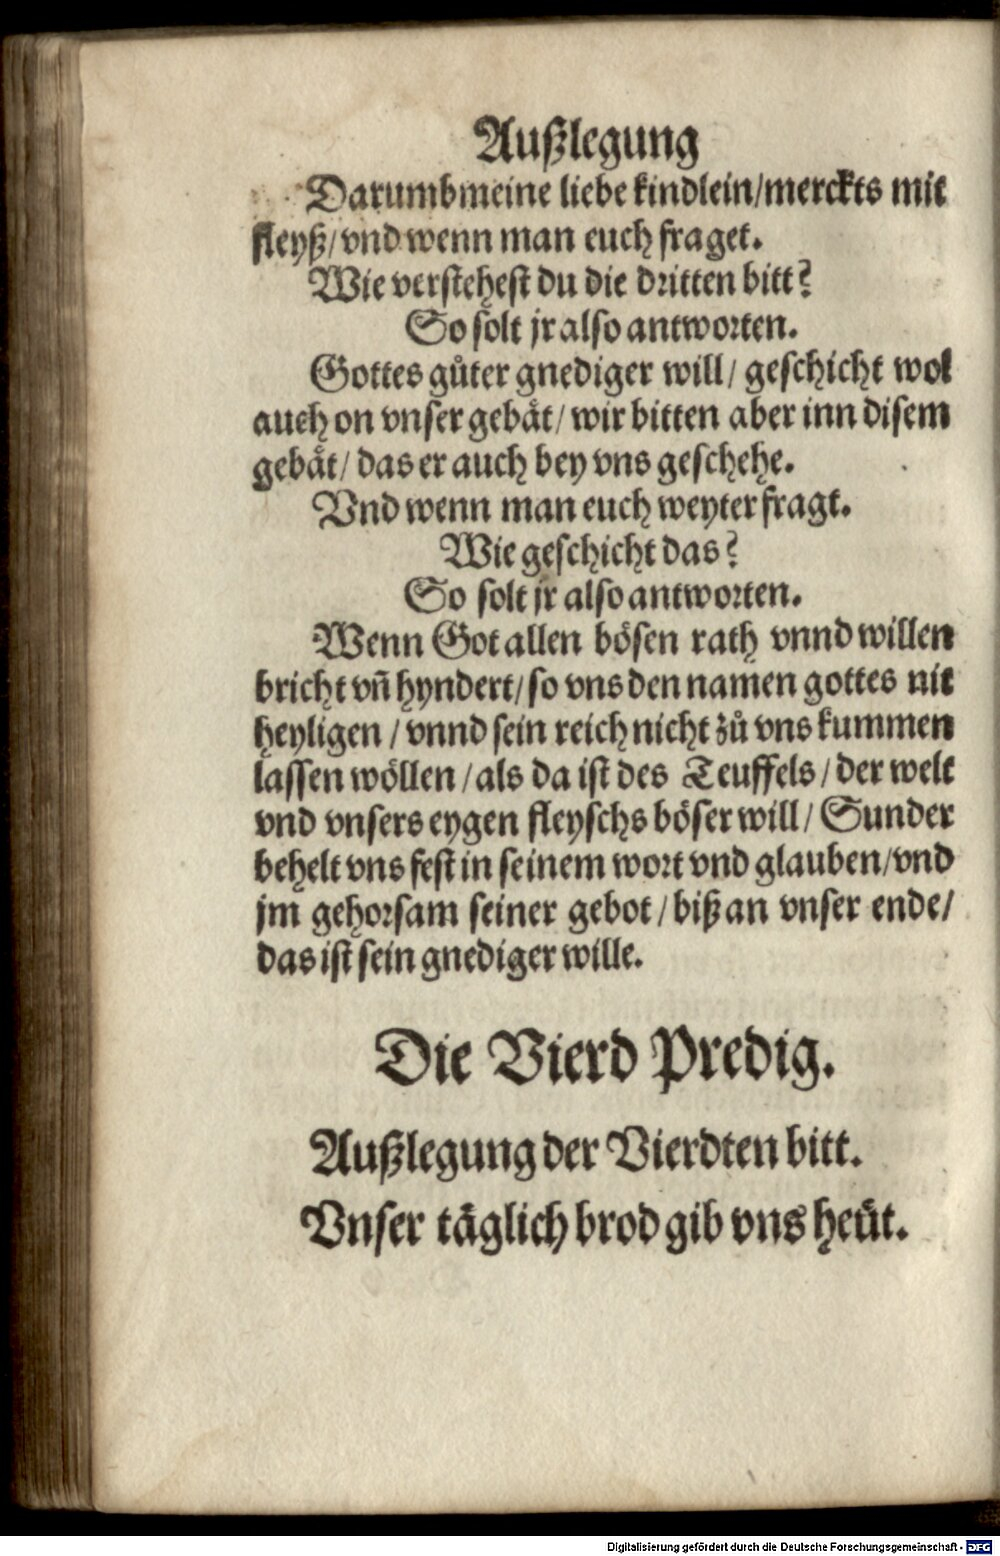 Außlegung
Darumb meine liebe kindlein/merckts mit
fleyß/vnd wenn man euch fraget.
Wie verstehest du die dritten bitt?
So solt jr also antworten.
Gottes gůter gnediger will/ geschicht wol
auch on vnser gebät/ wir bitten aber inn disem
gebät/ das er auch bey vns geschehe.
Vnd wenn man euch weyter fragt.
Wie geschicht das?
So solt jr also antworten.
Wenn Got allen bösen rath vnnd willen
bricht vñ hyndert/ so vns den namen gottes nit
heyligen / vnnd sein reich nicht zů vns kummen
lassen wöllen / als da ist des Teuffels / der welt
vnd vnsers eygen fleyschs böser will/ Sunder
behelt vns fest in seinem wort vnd glauben/vnd
jm gehorsam seiner gebot / biß an vnser ende/
das ist sein gnediger wille.
Die Vierd Predig.
Außlegung der Vierdten bitt.
Vnser täglich brod gib vns heüt.
Digitalisierung gefördert durch die Deutsche Forschungsgemeinschaft - DFG